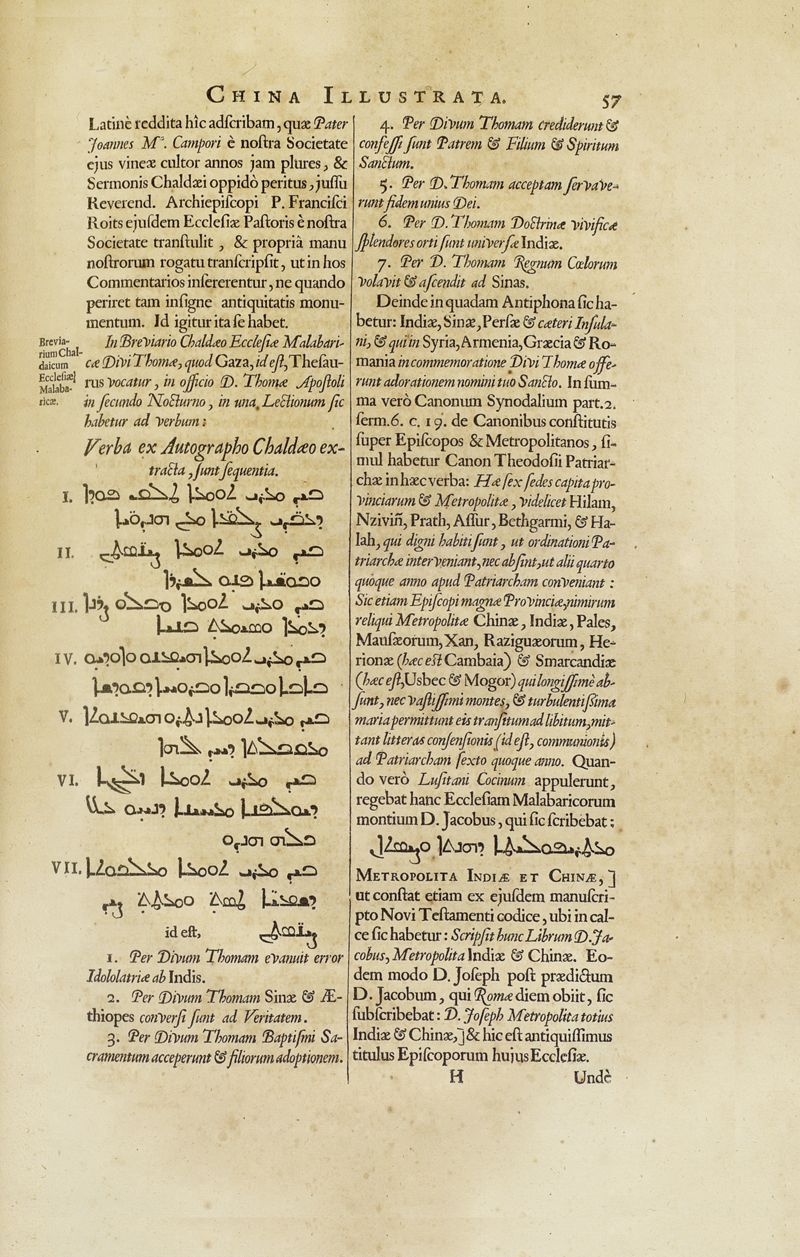 CHINA ILLUSTRATA. 57
Latinè reddita hîc adſcribam, quæ Pater
Joannes Mᵃ. Campori è noſtra Societate
ejus vineæ cultor annos jam plures, &
Sermonis Chaldæi oppidò peritus, juſſu
Reverend. Archiepiſcopi P. Franciſci
Roits ejuſdem Eccleſiæ Paſtoris è noſtra
Societate tranſtulit, & propriâ manu
noſtrorum rogatu tranſcripſit, ut in hos
Commentarios inſererentur, ne quando
periret tam inſigne antiquitatis monu-
mentum. Id igitur ita ſe habet.
Brevia-
rium Chal-
daicum
Eccleſiæ
Malaba-
ricæ.
In Breviario Chaldæo Eccleſiæ Malabari-
cæ Divi Thomæ, quod Gaza, id eſt, Theſau-
rus vocatur, in officio D. Thomæ Apoſtoli
in ſecundo Nocturno, in una Lectionum ſic
habetur ad verbum:
Verba ex Autographo Chaldæo ex-
tracta, ſunt ſequentia.
I. ܒܝܕ ܡܪܝ ܬܐܘܡܐ
II. ܒܝܕ ܡܪܝ ܬܐܘܡܐ
III. ܒܝܕ ܡܪܝ ܬܐܘܡܐ
IV. ܒܝܕ ܡܪܝ ܬܐܘܡܐ
V. ܒܝܕ ܡܪܝ ܬܐܘܡܐ
VI. ܒܝܕ ܡܪܝ ܬܐܘܡܐ
VII. ܒܝܕ ܡܪܝ ܬܐܘܡܐ
id eſt,
1. Per Divum Thomam evanuit error
Idololatriæ ab Indis.
2. Per Divum Thomam Sinæ & Æ-
thiopes converſi ſunt ad Veritatem.
3. Per Divum Thomam Baptiſmi Sa-
cramentum acceperunt & filiorum adoptionem.
4. Per Divum Thomam crediderunt &
confeſſi ſunt Patrem & Filium & Spiritum
Sanctum.
5. Per D. Thomam acceptam ſervave-
runt fidem unius Dei.
6. Per D. Thomam Doctrinæ vivificæ
ſplendores orti ſunt univerſæ Indiæ.
7. Per D. Thomam Regnum Cœlorum
volavit & aſcendit ad Sinas.
Deinde in quadam Antiphona ſic ha-
betur: Indiæ, Sinæ, Perſæ & cæteri Inſula-
ni, & qui in Syria, Armenia, Græcia & Ro-
mania in commemoratione Divi Thomæ offe-
runt adorationem nomini tuo Sancto. In ſum-
ma verò Canonum Synodalium part. 2.
ſerm. 6. c. 19. de Canonibus conſtitutis
ſuper Epiſcopos & Metropolitanos, ſi-
mul habetur Canon Theodoſii Patriar-
chæ in hæc verba: Hæ ſex ſedes capita pro-
vinciarum & Metropolitæ, videlicet Hilam,
Nziviñ, Prath, Aſſur, Bethgarmi, & Ha-
lah, qui digni habiti ſunt, ut ordinationi Pa-
triarchæ interveniant, nec abſint, ut alii quarto
quoque anno apud Patriarcham conveniant:
Sic etiam Epiſcopi magnæ Provinciæ, nimirum
reliqui Metropolitæ Chinæ, Indiæ, Pales,
Mauſæorum, Xan, Raziguæorum, He-
rionæ (hæc eſt Cambaia) & Smarcandiæ
(hæc eſt, Usbec & Mogor) qui longiſſimè ab-
ſunt, nec vaſtiſſimi montes, & turbulentiſſima
maria permittunt eis tranſitum ad libitum, mit-
tant litteras conſenſionis (id eſt, communionis)
ad Patriarcham ſexto quoque anno. Quan-
do verò Luſitani Cocinum appulerunt,
regebat hanc Eccleſiam Malabaricorum
montium D. Jacobus, qui ſic ſcribebat:
METROPOLITA INDIÆ ET CHINÆ,]
ut conſtat etiam ex ejuſdem manuſcri-
pto Novi Teſtamenti codice, ubi in cal-
ce ſic habetur: Scripſit hunc Librum D. Ja-
cobus, Metropolita Indiæ & Chinæ. Eo-
dem modo D. Joſeph poſt prædictum
D. Jacobum, qui Romæ diem obiit, ſic
ſubſcribebat: D. Joſeph Metropolita totius
Indiæ & Chinæ,] & hic eſt antiquiſſimus
titulus Epiſcoporum hujus Eccleſiæ.
H Undè